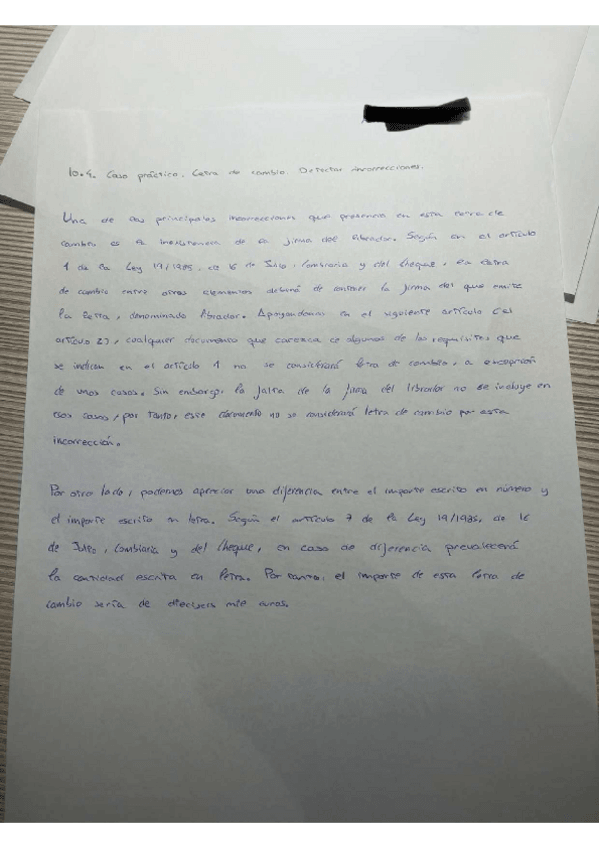 10.4. Caso práctico. Letra de cambio. Detectar incorrecciones.
Una de las principales incorrecciones que presencio en esta letra de
cambio es la inexistencia de la firma del librador. Según en el artículo
1 de la Ley 19/1985, de 16 de Julio, Cambiaria y del Cheque, la letra
de cambio entre otros elementos deberá de contener la firma del que emite
la letra, denominado librador. Apoyandonos en el siguiente artículo (el
artículo 2), cualquier documento que carezca de algunos de los requisitos que
se indican en el artículo 1 no se considerará letra de cambio, a excepción
de unos casos. Sin embargo, la falta de la firma del librador no se incluye en
esos casos, por tanto, ese documento no se considerará letra de cambio por esta
incorrección.
Por otro lado, podemos apreciar una diferencia entre el importe escrito en número y
el importe escrito en letra. Según el artículo 7 de la Ley 19/1985, de 16
de Julio, Cambiaria y del Cheque, en caso de diferencia prevalecerá
la cantidad escrita en letra. Por tanto, el importe de esta letra de
cambio sería de dieciseis mil euros.